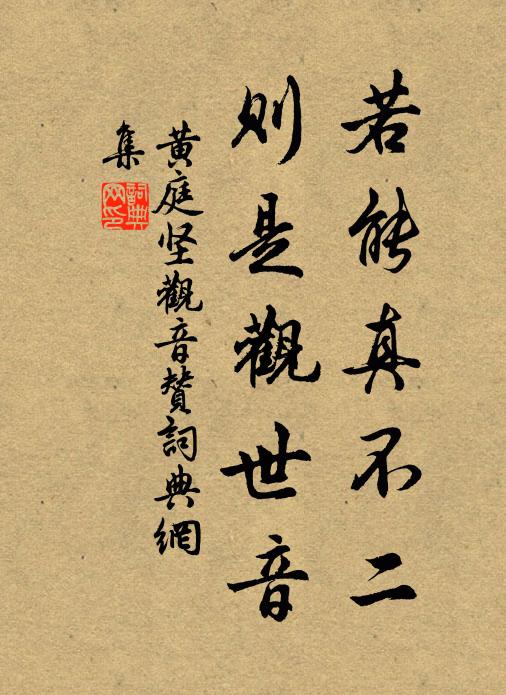 若能真不二
則是觀世音
黃庭坚觀音贊詞典網
集
詞典
网印